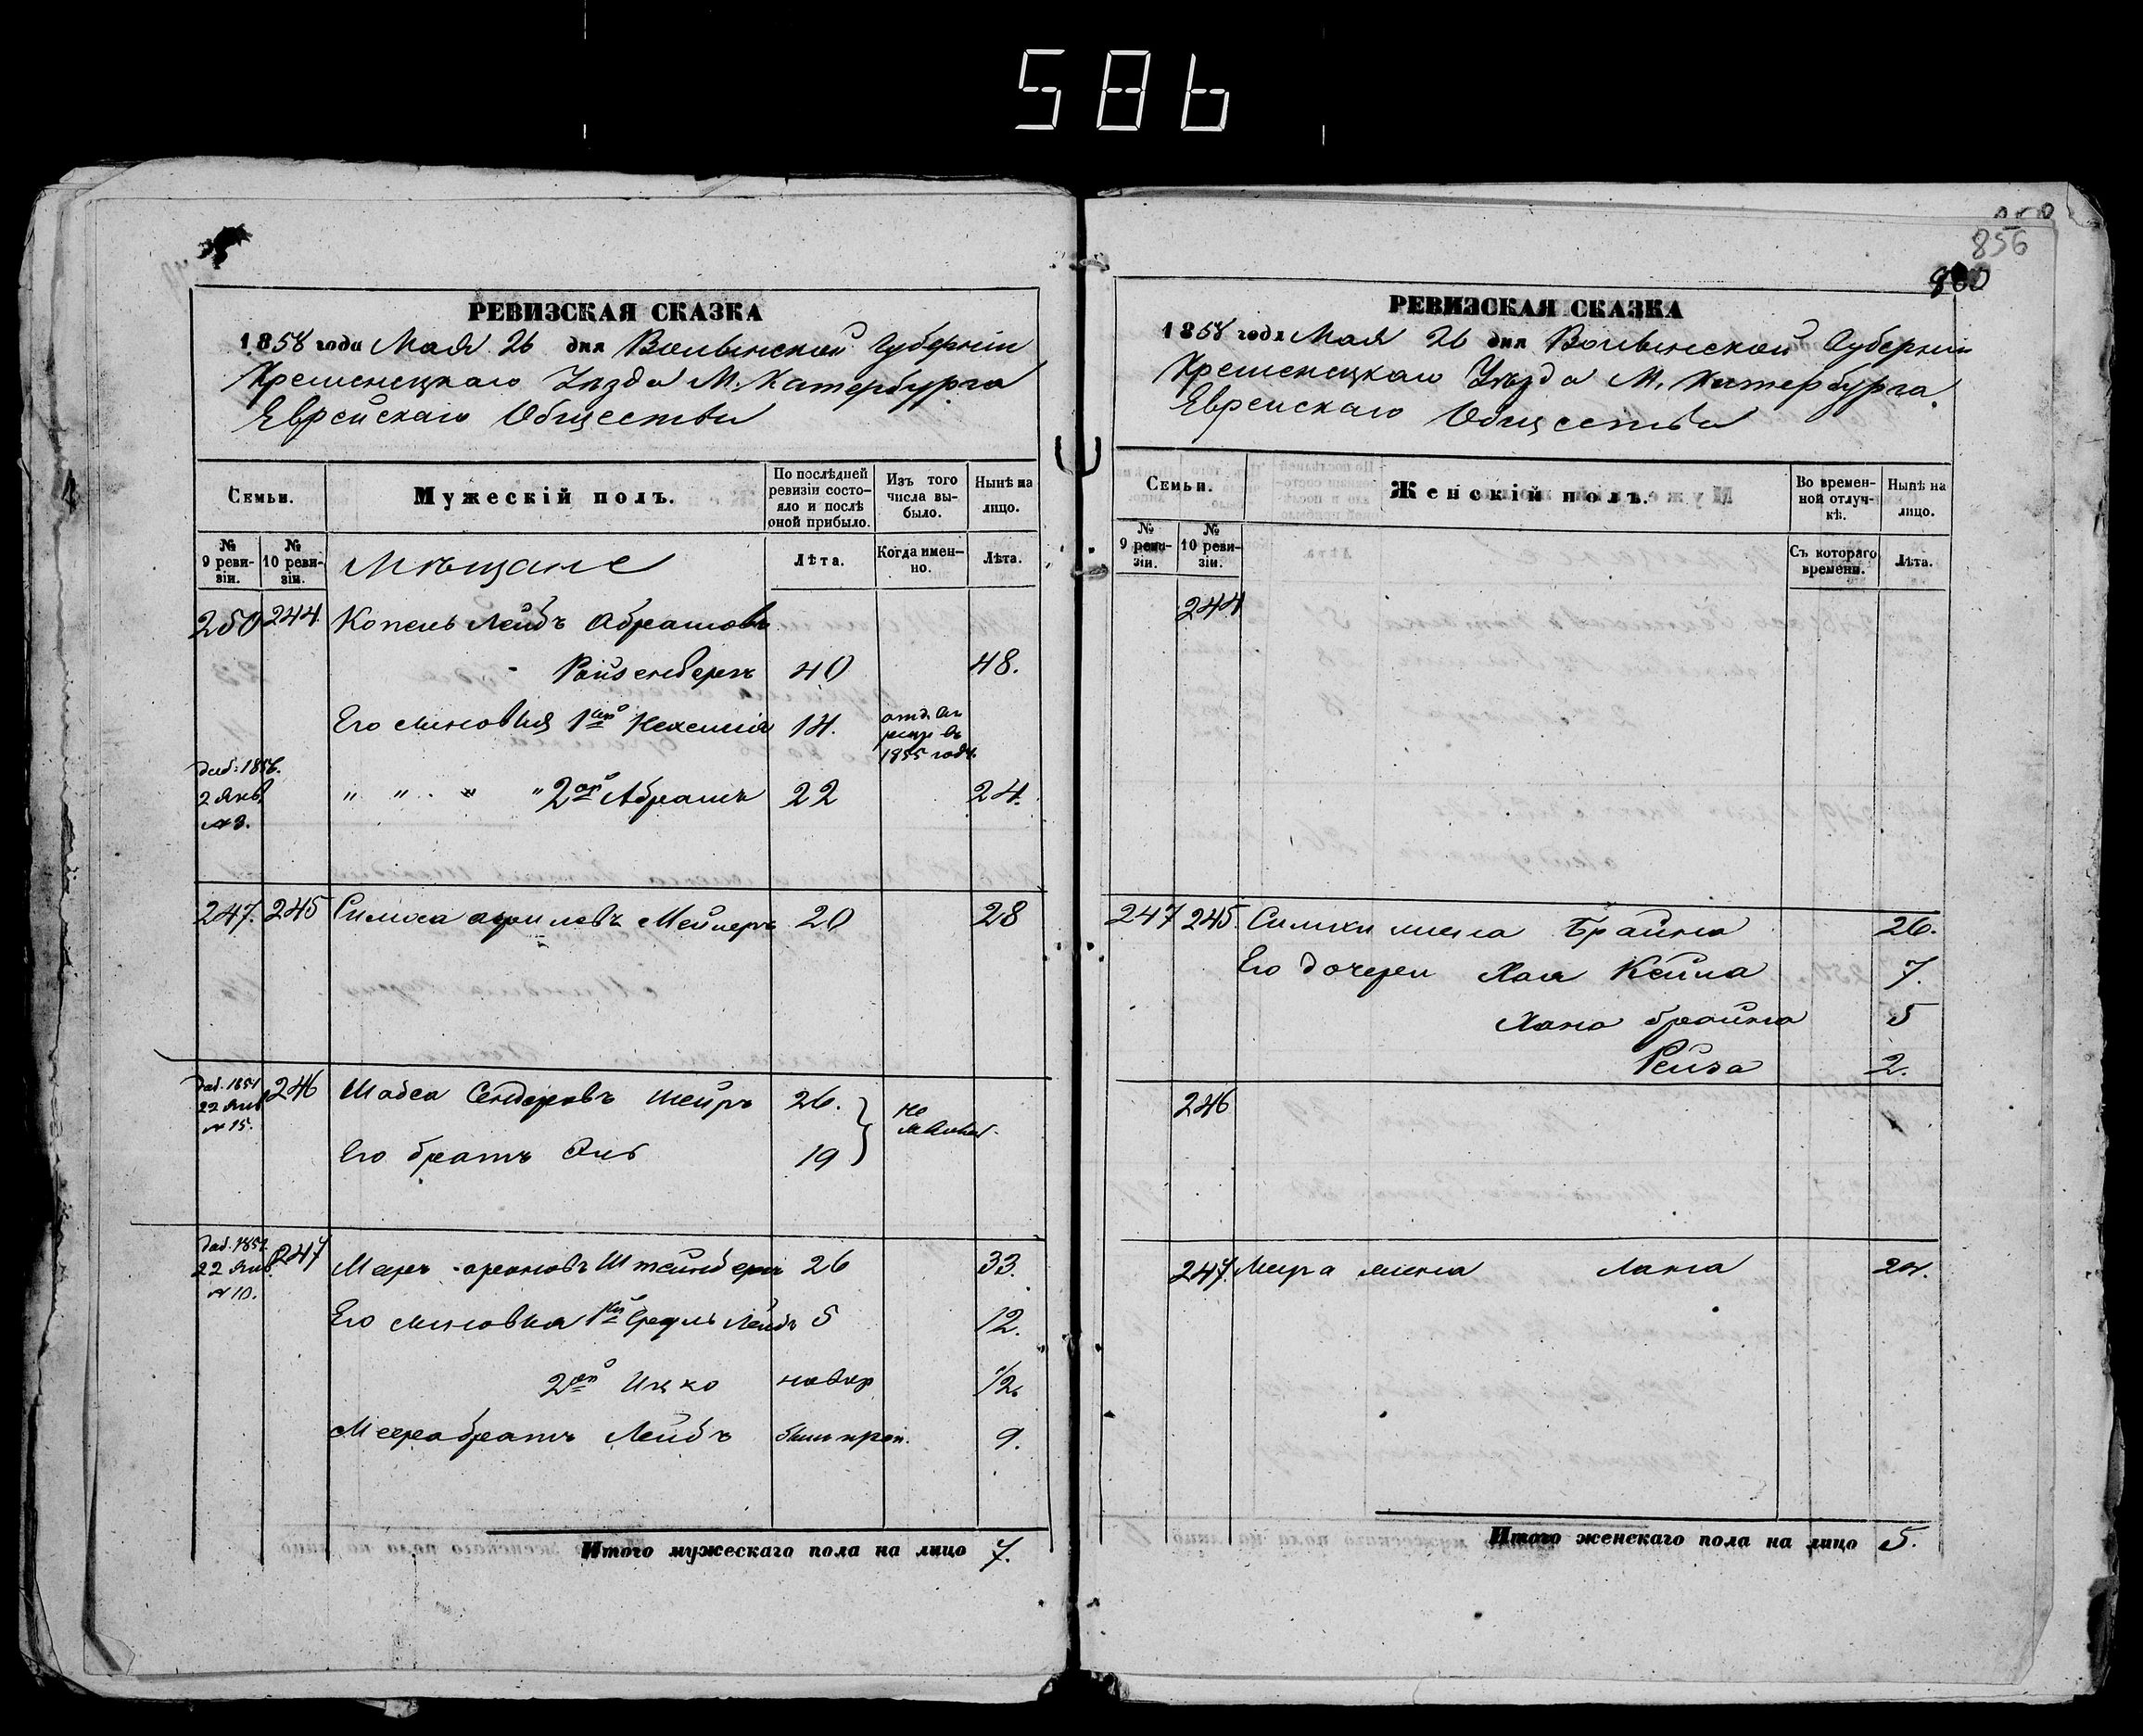 586
РЕВИЗСКАЯ СКАЗКА
1858 года Мая 26 дня Волынской Губерніи
Кременецкаго Уезда М. Катербурга
Еврейскаго Общества
Семьи.
Мужескій полъ.
По послѣдней ревизіи состо-
яло и послѣ
оной прибыло.
Изъ того
числа вы-
было.
Нынѣ на
лицо.
№
9 реви-
зіи.
№
10 реви-
зіи.
Мѣщане
Лѣта.
Когда имен-
но.
Лѣта.
250 244. Копель Лейбъ Абрамовъ
Ройзенбергъ 40 48.
Его сыновья 1ый Нехемія 14. отд. въ
рекр въ
1855 году.
доб: 1856.
2 Янв.
№ 3.
" " " " 2ой Абрамъ 22 24.
247. 245 Симха 20 28
доб. 1851
22 Янв
№ 15.
246 Шабса Сендеровъ 26.
Его братъ 19
не
доб. 1851.
22 Янв.
№ 10.
247 Мееръ Ароновъ Штейнбергъ 26 33.
Его сыновья 1ый Лейбъ 5 12.
2ой Ицко новор 1/2.
Меера братъ Лейбъ былъ проп. 9.
Итого мужескаго пола на лицо 7.
856
860
РЕВИЗСКАЯ СКАЗКА
1858 года Мая 26 дня Волынской Губерніи
Кременецкаго Уѣзда М. Катербурга.
Еврейскаго Общества
Семьи.
Женскій полъ.
Во времен-
ной отлуч-
кѣ.
Нынѣ на
лицо.
№
9 реви-
зіи.
№
10 реви-
зіи.
Съ котораго
времени.
Лѣта.
244
247 245. Симхи жена Брайна 26.
Его дочери Хая Кейла 7.
Хана Брайна 5
Рейза 2.
246
247. Меера жена Хана 24.
Итого женскаго пола на лицо 5.